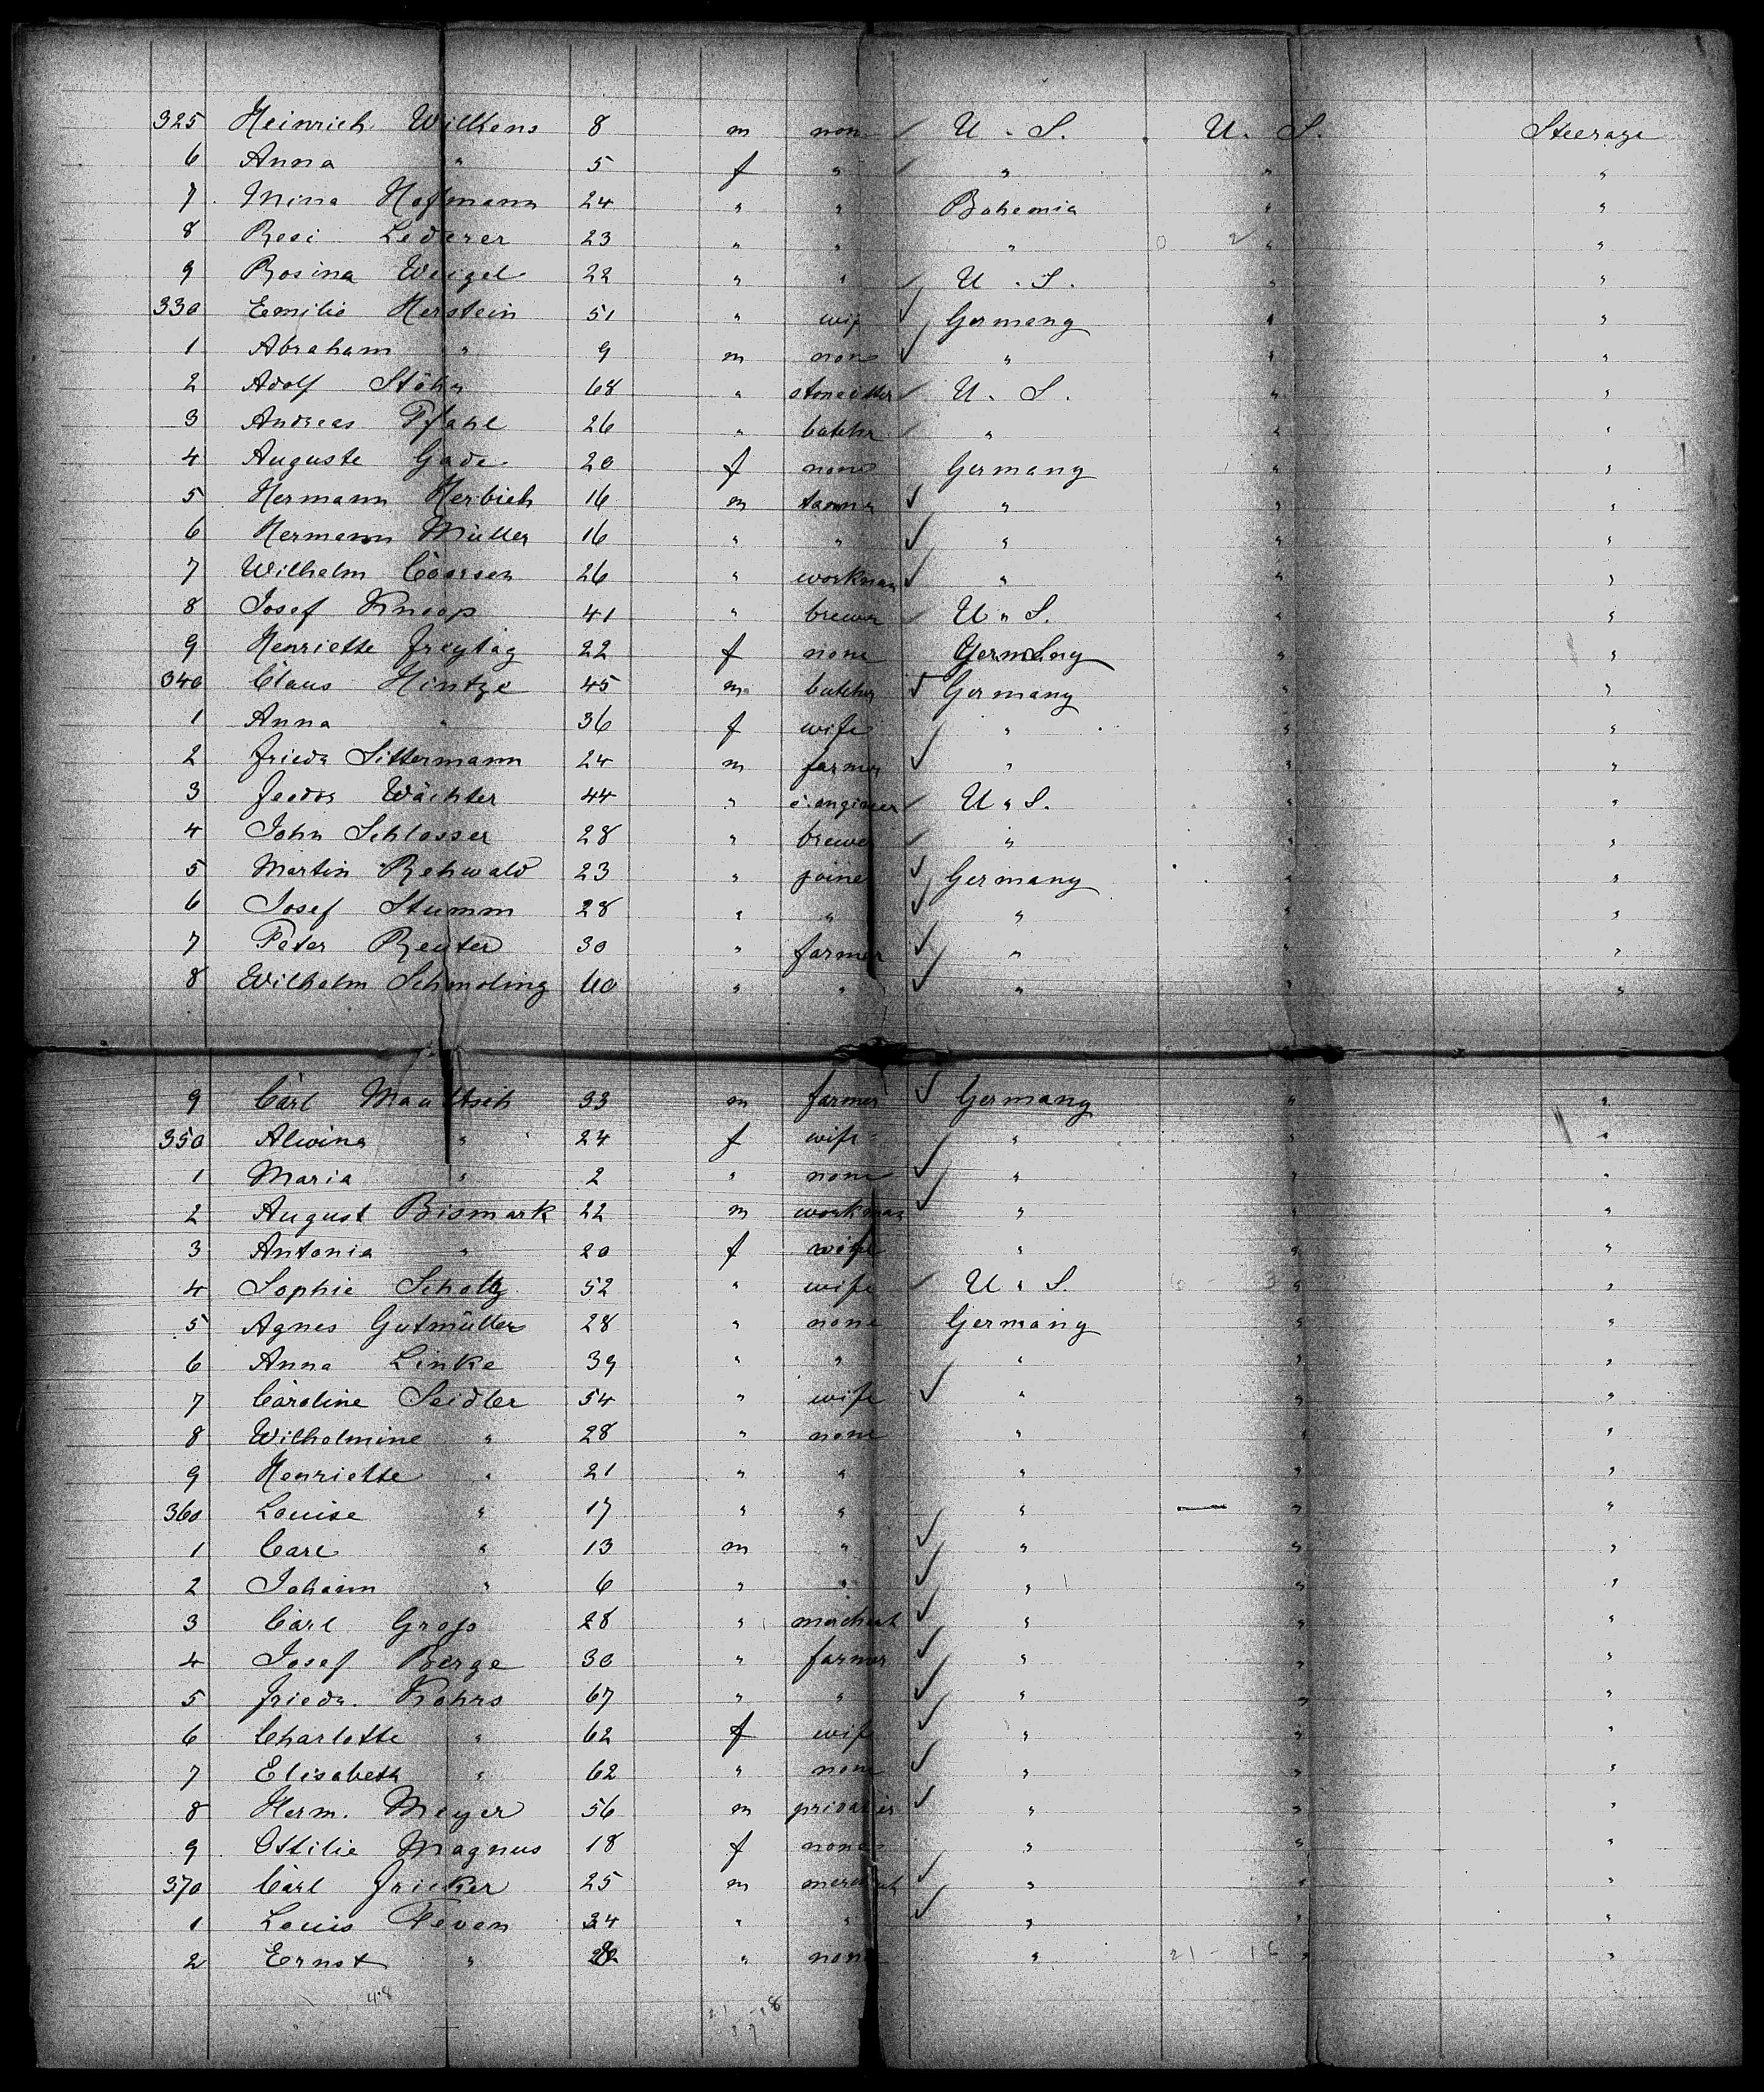 325 Heinrich Wilkens 8 m non ✓ U. S. U. S. Steerage
6 Anna " 5 f " ✓ " " "
7 Mina Hofmann 24 " " Bohemia " "
8 Resi Lederer 23 " " " " "
9 Rosina Weigel 22 " " ✓ U. S. " "
330 Emilie Herstein 51 " wif ✓ Germany " "
1 Abraham " 9 m none ✓ " " "
2 Adolf Stöhn 68 " stonecutter ✓ U. S. " "
3 Andreas Pfahl 26 " butchr ✓ " " "
4 Auguste Gade 20 f none Germany " "
5 Hermann Herbich 16 m ✓ " " "
6 Hermann Müller 16 " " ✓ " " "
7 Wilhelm Coorsen 26 " workman ✓ " " "
8 Josef Knoop 41 " brewer ✓ U. S. " "
9 Henriette Freytag 22 f none Germany " "
340 Claus Hintze 45 m butcher ✓ Germany " "
1 Anna " 36 f wife ✓ " " "
2 Friedr Sittermann 24 m farmer ✓ " " "
3 Feodor Wächter 44 " c. engineer ✓ U. S. " "
4 John Schlosser 28 " brewer ✓ " " "
5 Martin Rehwald 23 " joiner ✓ Germany " "
6 Josef Stumm 28 " " ✓ " " "
7 Peter Reuter 30 " farmer ✓ " " "
8 Wilhelm Schmoling 60 " " ✓ " " "
9 Carl Maultsch 33 m farmer ✓ Germany " "
350 Alwina " 24 f wife ✓ " " "
1 Maria " 2 " none ✓ " " "
2 August Bismark 22 m workman ✓ " " "
3 Antonia " 20 f wife " " "
4 Sophie Scholtz 52 " wife ✓ U. S. " "
5 Agnes Gutmüller 28 " none Germany " "
6 Anna Linke 39 " " " " "
7 Caroline Seidler 54 " wife ✓ " " "
8 Wilhelmine " 28 " none " " "
9 Henriette " 21 " " " " "
360 Louise " 17 " " " — " "
1 Carl " 13 m " ✓ " " "
2 Johann " 6 " " ✓ " " "
3 Carl Groß 28 " merchant ✓ " " "
4 Josef Berge 30 " farmer ✓ " " "
5 Friedr. Kohrs 67 " " ✓ " " "
6 Charlotte " 62 f wife ✓ " " "
7 Elisabeth " 62 " none ✓ " " "
8 Herm. Meyer 56 m privatier ✓ " " "
9 Ottilie Magnus 18 f none " " "
370 Carl Fricker 25 m merchant ✓ " " "
1 Louis Feven 24 " " ✓ " " "
2 Ernst " " none " " "
48